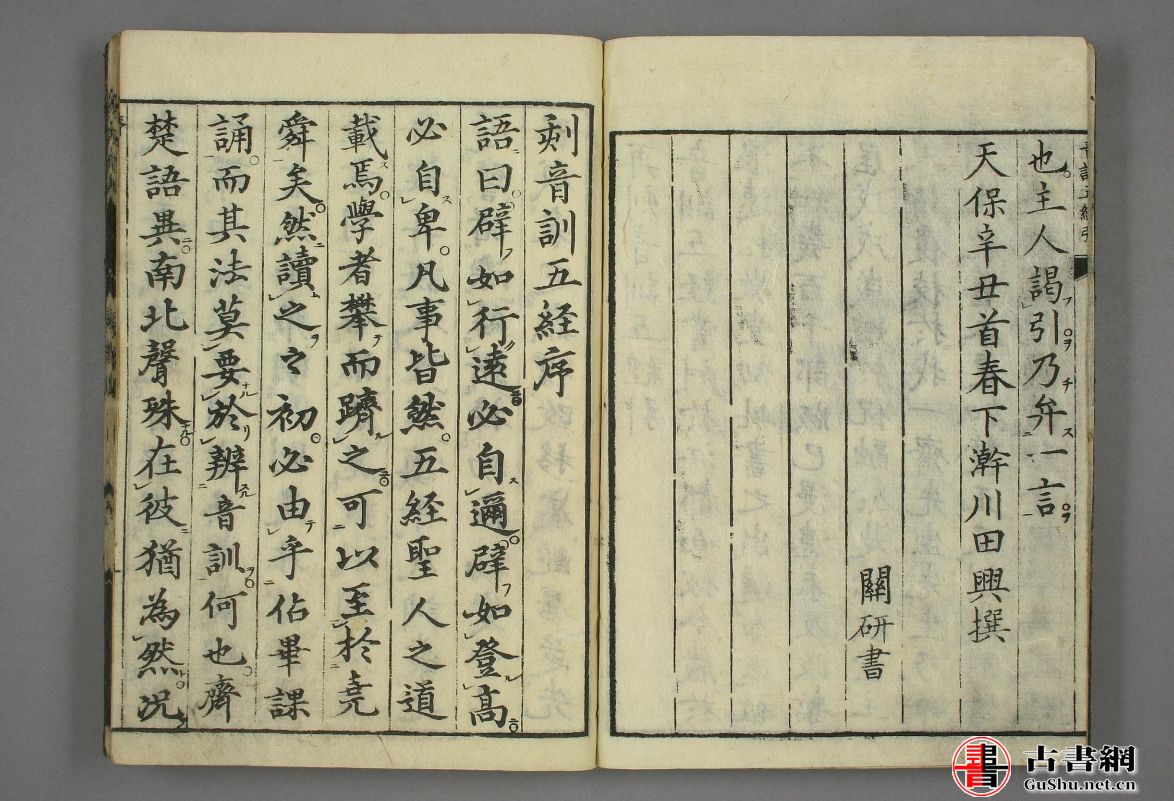 也主人謁引乃弁一言
天保辛丑首春下澣川田興撰
關研書
刻音訓五経序
語曰辟如行遠必自邇辟如登高
必自卑凡事皆然五経聖人之道
載焉學者攀而躋之可以至於堯
舜矣然讀之之初必由乎佔畢課
誦而其法莫要於辨音訓何也齊
楚語異南北聲殊在彼猶為然况
書
古書網
GuShu.net.cn